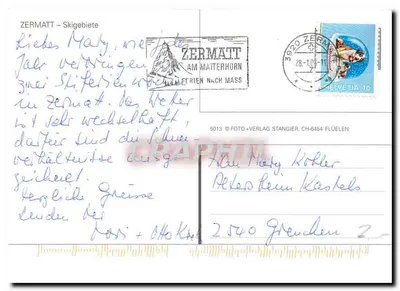 ZERMATT – Skigebiete
Liebes Mary, wie jedes
Jahr verbringen
zwei Skiferienwochen
in Zermatt. Das Wetter
ist sehr wechselhaft,
dafür sind die Schnee-
verhältnisse ausge-
zeichnet.
Herzliche Grüsse
senden Dir
Doris + Otto
ZERMATT
AM MATTERHORN
FERIEN NACH MASS
3920 ZERMATT
HELVETIA
5013 © FOTO+VERLAG STANGIER, CH-6454 FLÜELEN
Frau Mary Köhler
Altersheim Kastels
2540 Grenchen